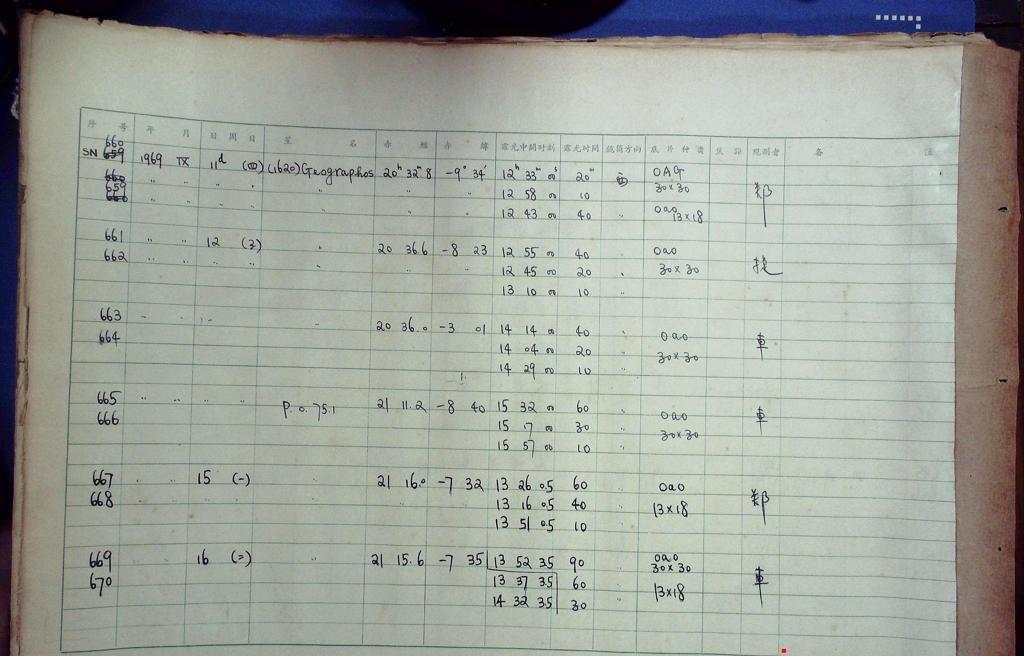 序 号 年 月 日 周 日 星 名 赤 經 赤 緯 露光中間时刻 露光时間 鏡筒方向 底 片 种 类 观測者 备 註
660
SN 659 1969 IX 11d (四) (1620) Geographos 20h 32m.8 -9° 34′ 12h 33m 00s 20m 西 OAG
660 〃 〃 〃 〃 〃 〃 12 58 00 10 30×30 郑
659
660 〃 〃 〃 〃 12 43 00 40 〃 0a0 13×18
661 〃 〃 12 〃 20 36.6 -8 23 12 55 00 40 〃 0a0
662 〃 〃 〃 〃 〃 〃 12 45 00 20 〃 30×30
13 10 00 10 〃
663 〃 〃 〃 20 36.0 -3 01 14 14 00 40 〃 0a0 車
664 14 04 00 20 〃 30×30
14 29 00 10 〃
665 〃 〃 〃 〃 P.O. 75.1 21 11.2 -8 40 15 32 00 60 〃 0a0 車
666 15 17 00 30 〃 30×30
15 57 00 10 〃
667 〃 〃 15 (一) 〃 21 16.0 -7 32 13 26 05 60 〃 0a0 郑
668 13 16 05 40 〃 13×18
13 51 05 10 〃
669 〃 〃 16 (二) 〃 21 15.6 -7 35 13 52 35 90 0a0 30×30 車
670 13 37 35 60 13×18
14 32 35 30 〃